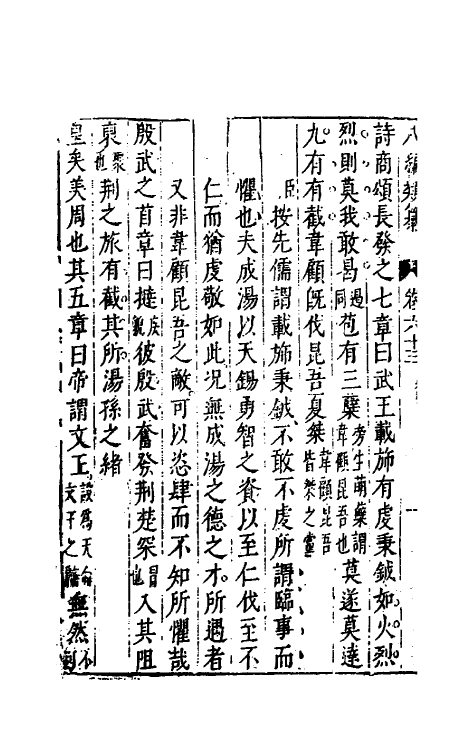 八編類纂 卷六十三
詩商頌長發之七章曰武王載斾有虔秉鉞如火烈
烈則莫我敢曷過同苞有三蘖旁生萌蘖謂韋顧昆吾也莫遂莫達
九有有截韋顧旣伐昆吾夏桀韋顧昆吾皆桀之黨
臣按先儒謂載斾秉鉞不敢不虔所謂臨事而
懼也夫成湯以天錫勇智之資以至仁伐至不
仁而猶虔敬如此况無成湯之德之才所遇者
又非韋顧昆吾之敵可以恣肆而不知所懼哉
殷武之首章曰撻疾貌彼殷武奮發荆楚罙冒也入其阻
裒聚也荆之旅有截其所湯孫之緒
皇矣美周也其五章曰帝謂文王設爲天命文王之無然不